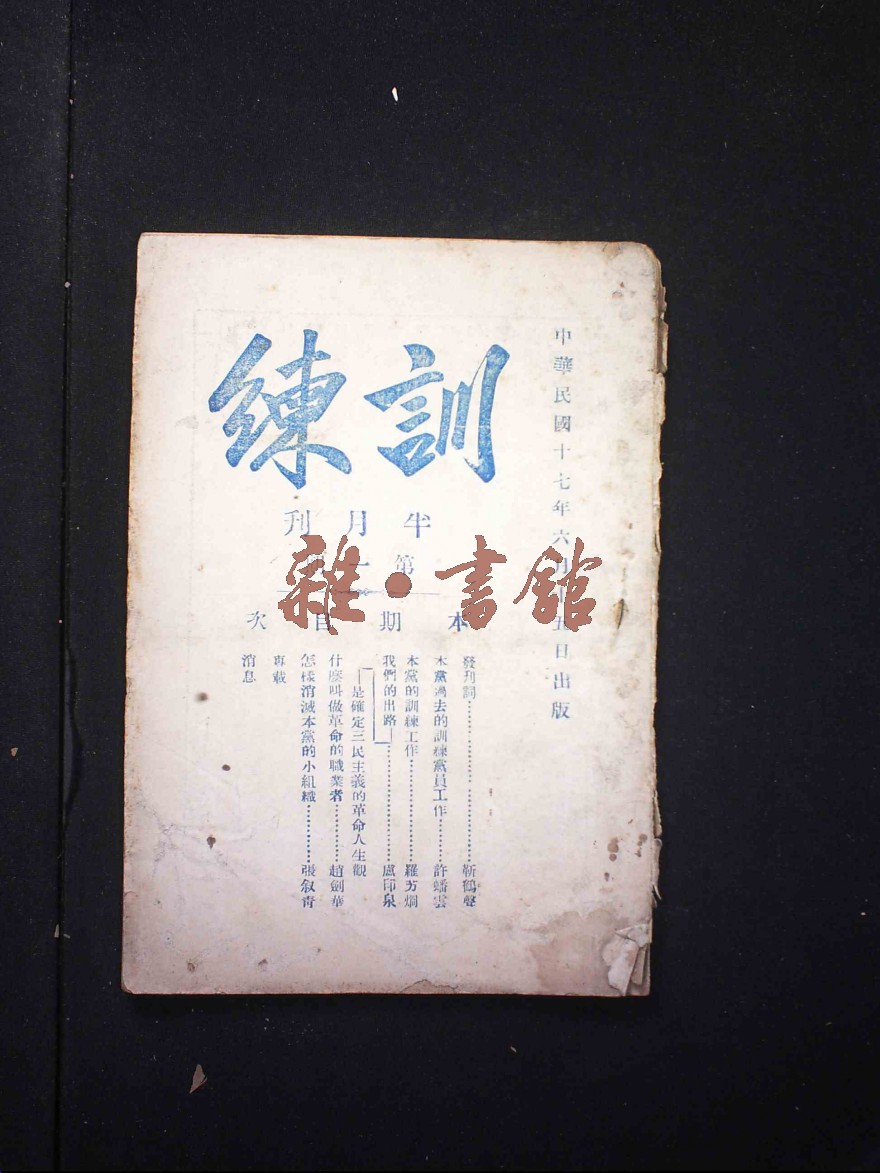 中華民國十七年六月 五日出版
訓練
半月刊
第一期
本期目次
發刊詞…………………靳鶴聲
本黨過去的訓練黨員工作………許蟠雲
本黨的訓練工作…………羅芳炯
我們的出路…………盧印泉
—是確定三民主義的革命人生觀
什麼叫做革命的職業者…………趙劍華
怎樣消滅本黨的小組織…………張叙青
專載
消息
雜•書館